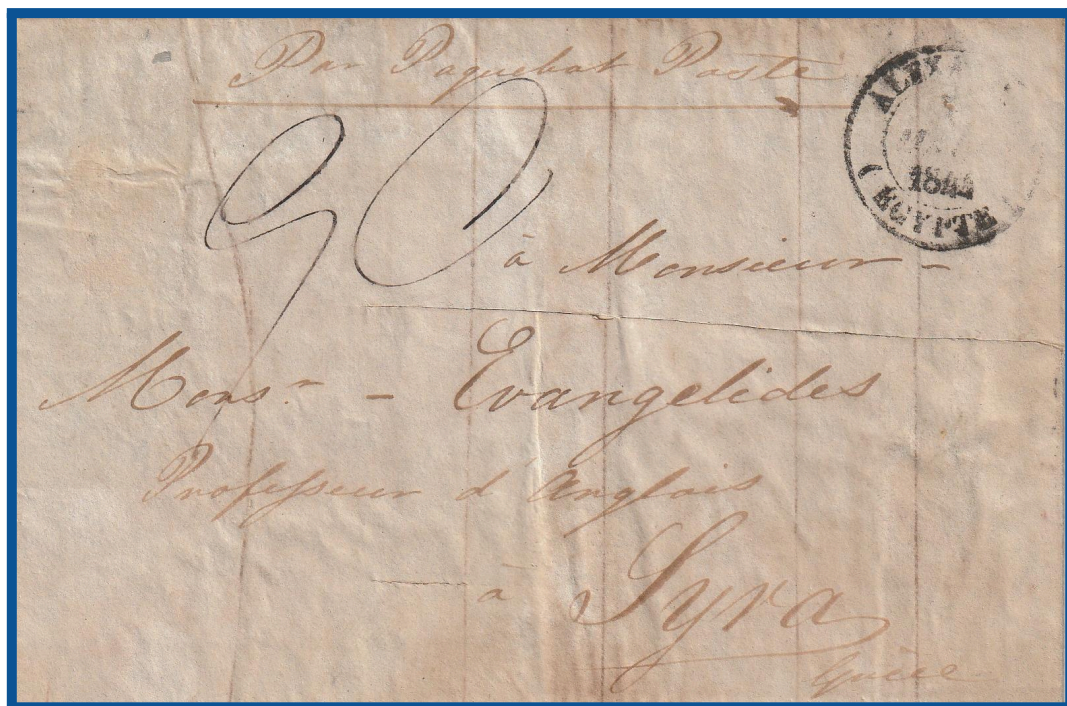 Par Paquebot Poste
ALEX
1842
(EGYPTE)
90
à Monsieur -
Monsʳ - Evangelides
Professeur d'Anglais
à Syra
Grèce